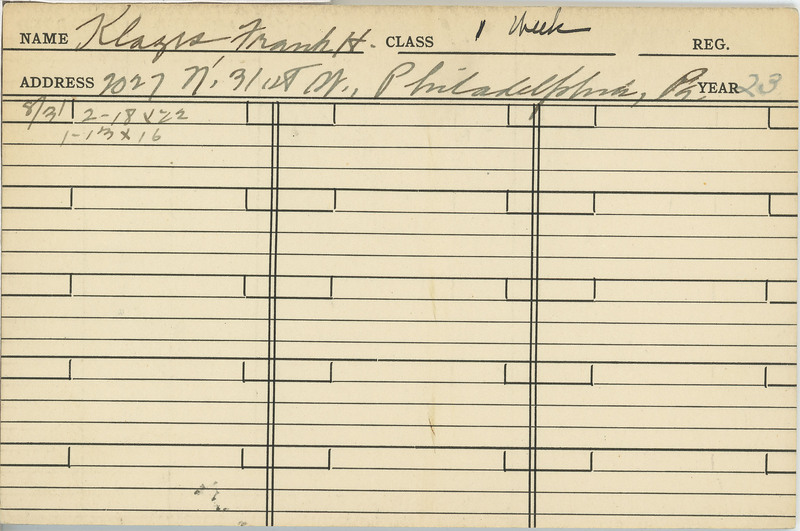 NAME Klages Frank H. CLASS 1 Week REG.
ADDRESS 2027 N. 31st St., Philadelphia, Pa. YEAR 23
8/31 2-18 x 22
1-13 x 16